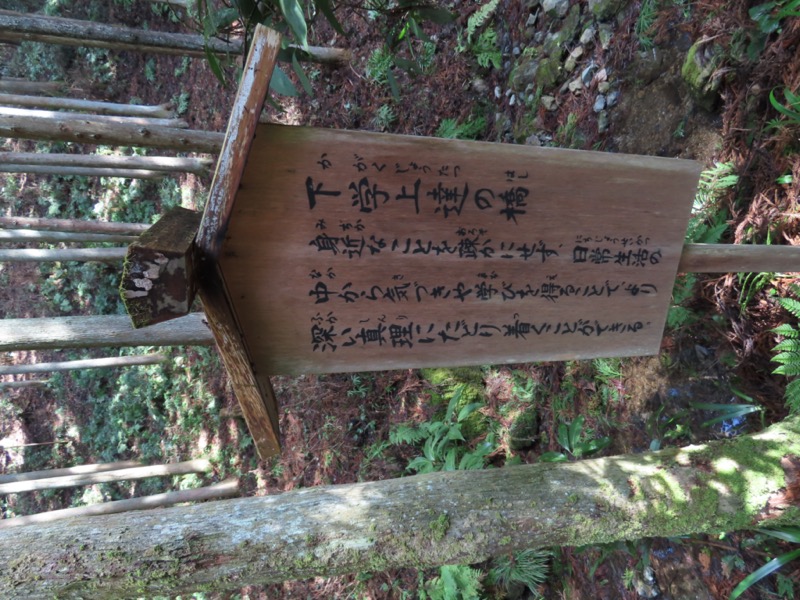 下学上達の橋
身近なことを疎かにせず、日常生活の
中から気づきや学びを得ることで、より
深い真理にたどり着くことができる。